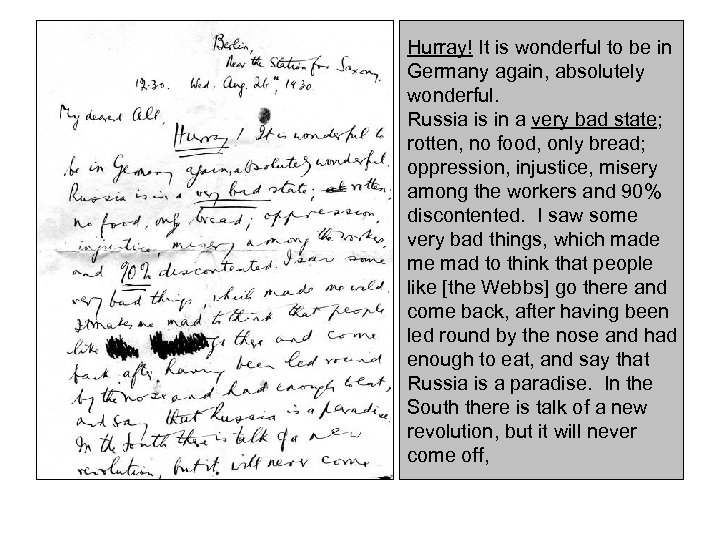 Berlin,
Near the Station for Saxony,
12.30. Wed. Aug. 26th, 1930
My dearest All,
Hurray! It is wonderful to
be in Germany again, absolutely wonderful.
Russia is in a very bad state; rotten;
no food, only bread; oppression,
injustice, misery among the workers,
and 90% discontented. I saw some
very bad things, which made me wild.
It makes me mad to think that people
like go there and come
back, after having been led round
by the nose and had enough to eat,
and say that Russia is a paradise.
In the South there is talk of a new
revolution, but it will never come
Hurray! It is wonderful to be in
Germany again, absolutely
wonderful.
Russia is in a very bad state;
rotten, no food, only bread;
oppression, injustice, misery
among the workers and 90%
discontented.  I saw some
very bad things, which made
me mad to think that people
like [the Webbs] go there and
come back, after having been
led round by the nose and had
enough to eat, and say that
Russia is a paradise.  In the
South there is talk of a new
revolution, but it will never
come off,